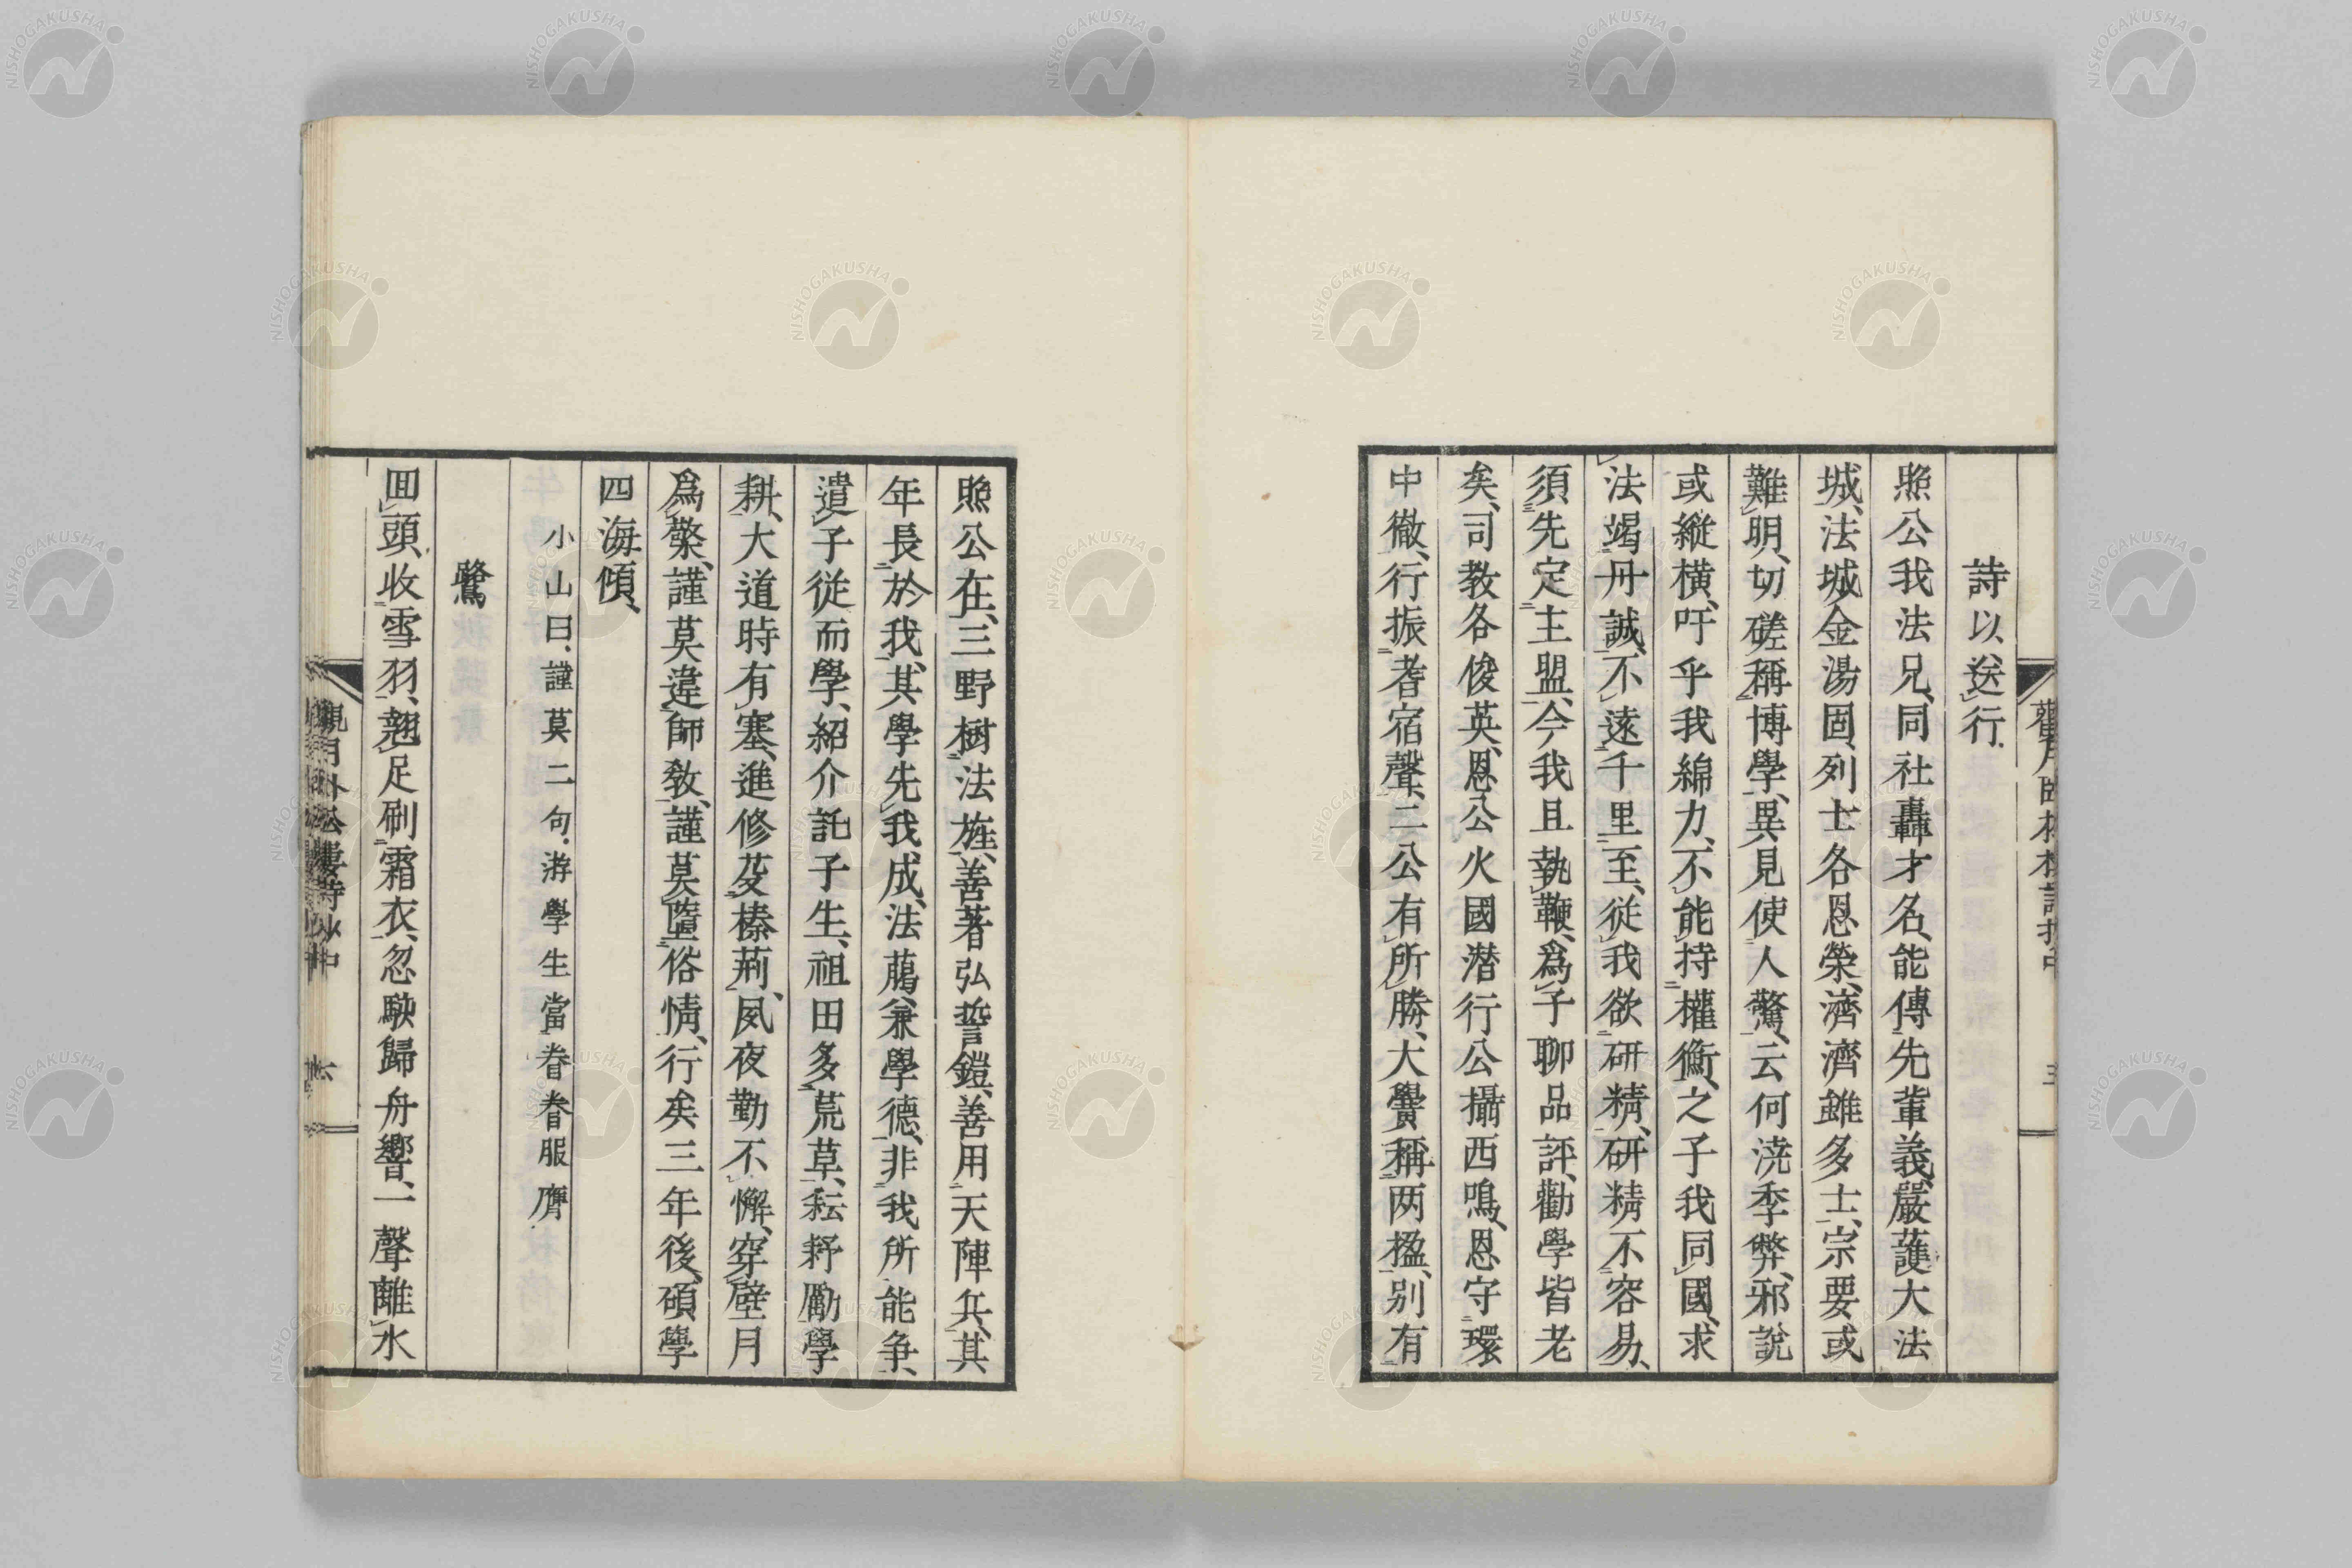 詩以送行
照公我法兄、同社轟才名、能傳先輩義、嚴護大法
城、法城金湯固、列士各恩榮、濟濟雖多士、宗要或
難明、切磋稱博學、異見使人驚、云何澆季弊、邪說
或縱橫、吁乎我綿力、不能持權衡、之子我同國、求
法竭丹誠、不遠千里至、從我欲研精、研精不容易、
須先定主盟、今我且執鞭、爲子聊品評、勸學皆老
矣、司教各俊英、恩公火國潜、行公攝西鳴、恩守環
中徹、行振耆宿聲、二公有所勝、大黌稱兩楹、別有
照公在、三野樹法旌、善著弘誓鎧、善用天陣兵、其
年長於我、其學先我成、法﨟兼學德、非我所能爭、
遣子從而學、紹介託子生、祖田多荒草、耘耔勵學
耕、大道時有塞、進修芟榛荊、夙夜勤不懈、穿壁月
爲檠、謹莫違師敎、謹莫墮俗情、行矣三年後、碩學
四海傾、
小山曰、謹莫二句、游學生當眷眷服膺
鷺
回頭收雪羽、翹足刷霜衣、忽駛歸舟響、一聲離水